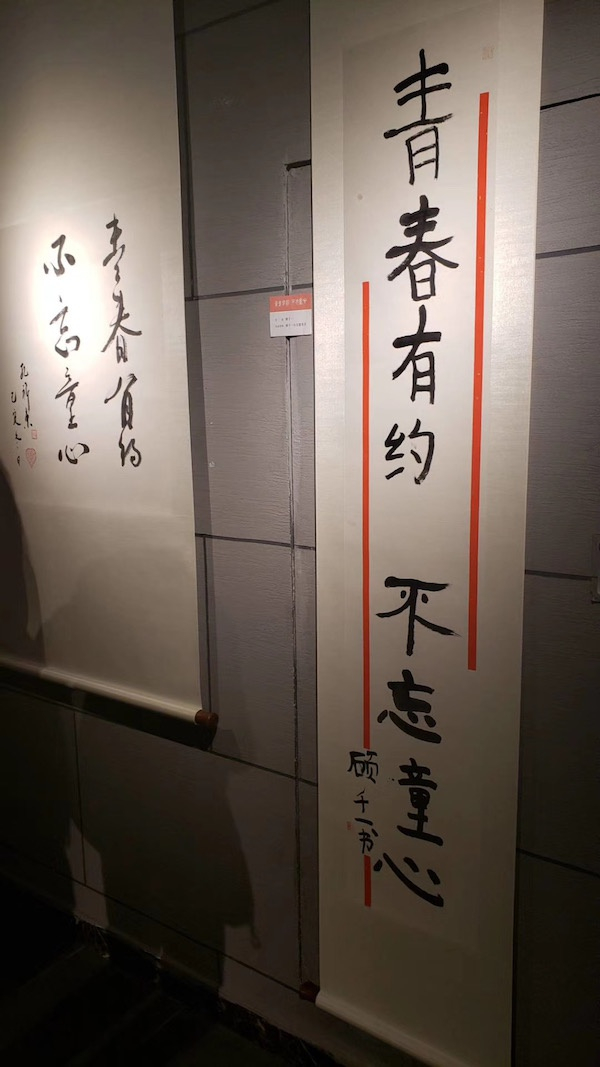 青春有约 不忘童心
顾千一书
青春有约
不忘童心